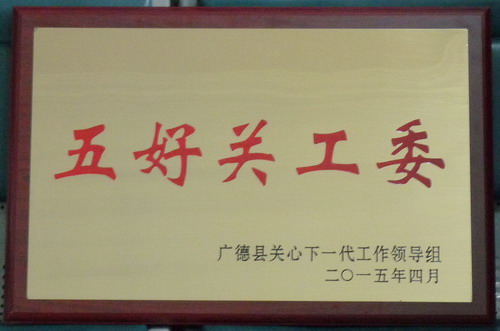 五好关工委
广德县关心下一代工作领导组
二〇一五年四月